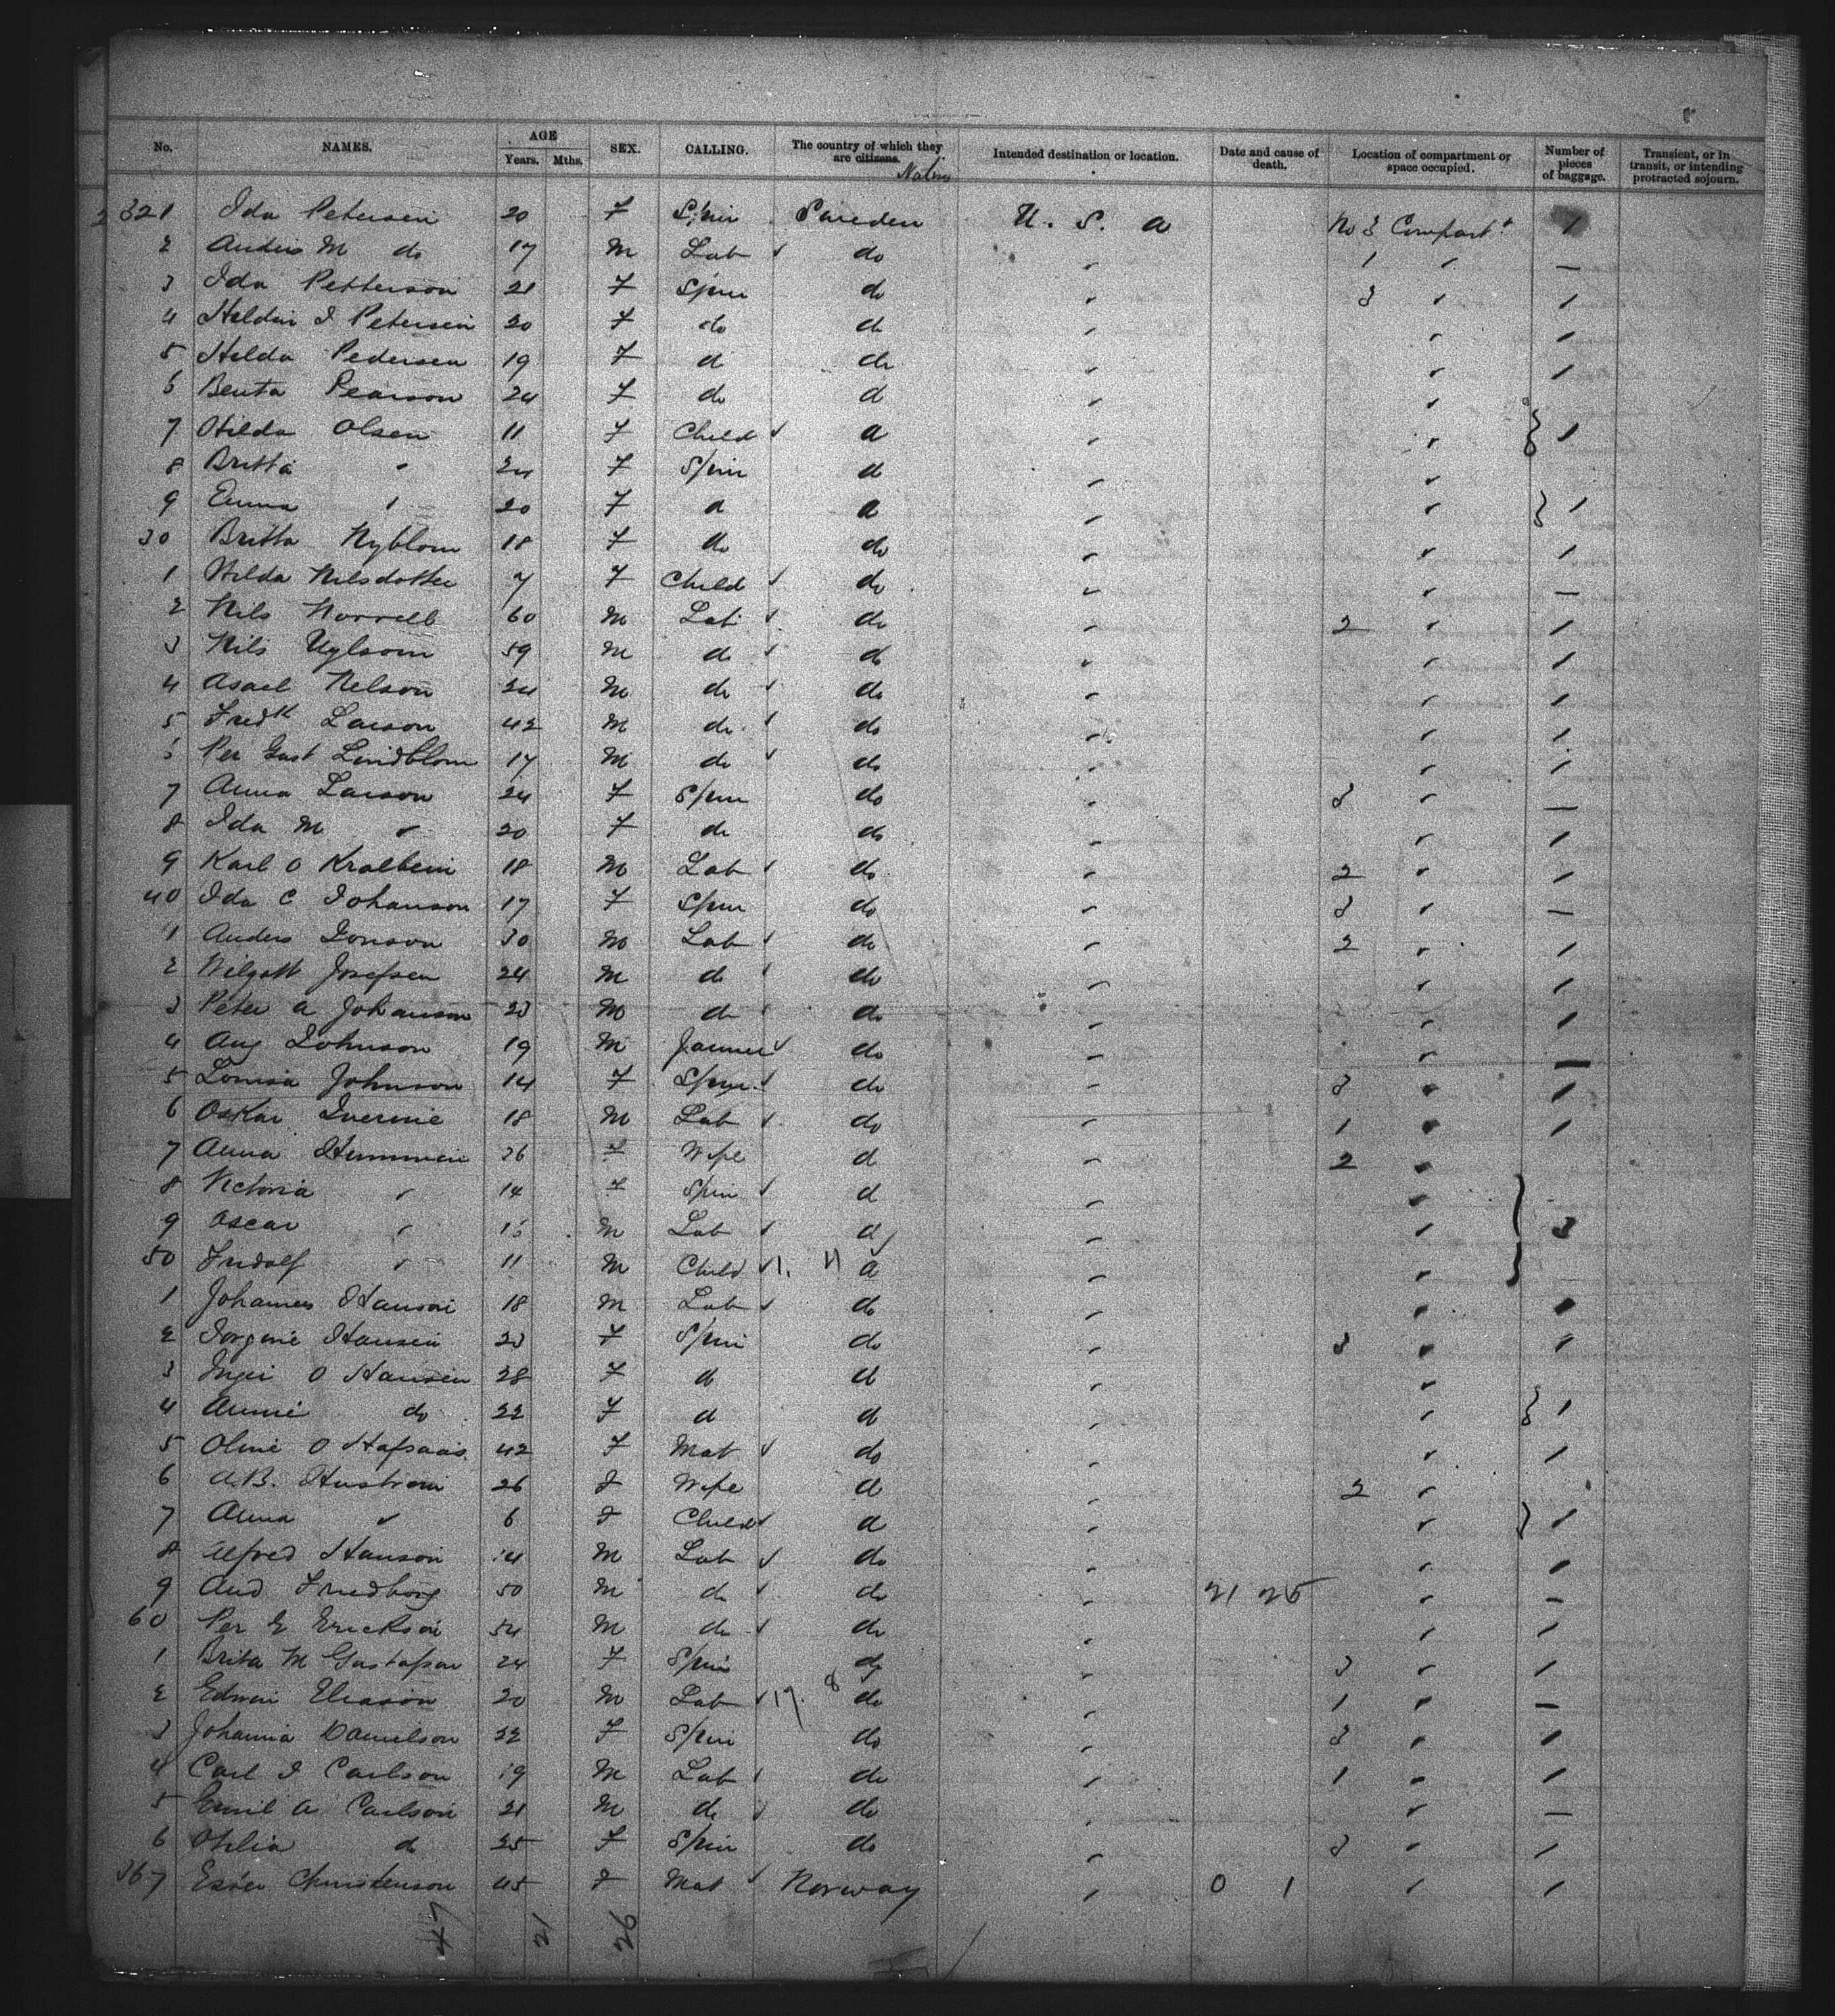 No. NAMES. AGE Years. Mths. SEX. CALLING. The country of which they are citizens. Native Intended destination or location. Date and cause of death. Location of compartment or space occupied. Number of pieces of baggage. Transient, or in transit, or intending protracted sojourn.
321 Ida Petersen 20 F Spin Sweden U. S. A No 3 Compart.t 1
2 Anders M do 17 M Lab do " 1 " —
3 Ida Petterson 21 F Spin do " 3 " 1
4 I Petersen 20 F do do " " 1
5 Hilda Pedersen 19 F do do " " 1
6 Benta Pearson 24 F do do " "
7 Hilda Olsen 11 F Child do " " 1
8 Britta " 24 F Spin do " "
9 Emma " 20 F do do " " 1
30 Britta Nyblom 18 F do do " " 1
1 Hilda Nilsdotter 7 F Child do " " —
2 Nils Norrell 60 M Lab do " 2 " 1
3 Nils 59 M do do " " 1
4 Asael Nelson 24 M do do " " 1
5 Fredk Larson 42 M do do " " 1
6 Per Gust Lindblom 17 M do do " " 1
7 Anna Larson 24 F Spin do " 3 " —
8 Ida M " 20 F do do " " 1
9 Karl O 18 M Lab do " 2 " 1
40 Ida C Johanson 17 F Spin do " 3 " —
1 Anders Jonson 30 M Lab do " 2 " 1
2 Josefsen 24 M do do " " 1
3 Peter A Johanson 23 M do do " " 1
4 Aug Johnson 19 M do " " —
5 Louisa Johnson 14 F Spin do " 3 " 1
6 Oskar 18 M Lab do " 1 " 1
7 Anna 36 F Wife do " 2 "
8 Victoria " 14 F Spin do " "
9 Oscar " M Lab do " " 3
50 Fridolf " 11 M Child 11 do " "
1 Johannes Hanson 18 M Lab do " " 1
2 Hansen 23 F Spin do " 3 " 1
3 O Hansen 28 F do do " "
4 Annie do 22 F do do " " 1
5 Oline O 42 F Mat do " " 1
6 A.B. 26 F Wife do " 2 "
7 Anna " 6 F Child do " " 1
8 Alfred Hanson 14 M Lab do " " 1
9 And Friedborg 50 M do do " 21 25 " —
60 Per E Erickson 54 M do do " " 1
1 Brita M Gustafson 24 F Spin do " 3 " 1
2 Edwin Eliason 20 M Lab 17. 8 do " 1 " —
3 Johanna Danielson 22 F Spin do " 3 " 1
4 Carl I Carlson 19 M Lab do " 1 " 1
5 Emil A Carlson 21 M do do " " —
6 do 25 F Spin do " 3 " 1
367 Christenson 45 F Mat Norway " 0 1 " 1
47 21 26